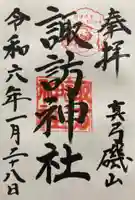 奉拝
真弓磯山
諏訪神社
令和六年一月二八日